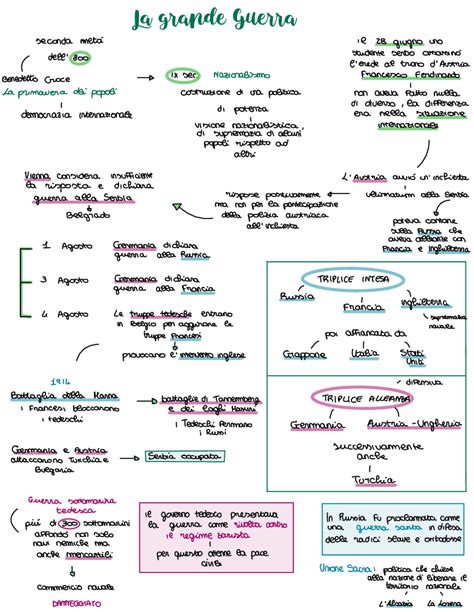 La grande Guerra
seconda metà
dell' 800
Benedetto Croce
La primavera dei popoli
democrazia internazionale
IX sec Nazionalismo
costruzione di una politica
di potenza
visione nazionalistica,
di supremazia di alcuni
popoli rispetto ad
altri
il 28 giugno uno
studente serbo assassinò
l'erede al trono d'Austria
Francesco Ferdinando
non aveva fatto nulla
di diverso, la differenza
era nella situazione
internazionale
L'Austria avviò un'inchiesta
ultimatum alla Serbia
poteva contare
sulla Russia che
aveva alleanze con
Francia e Inghilterra
rispose positivamente
ma non per la partecipazione
della polizia austriaca
all'inchiesta
Vienna considera insufficiente
la risposta e dichiara
guerra alla Serbia
Belgrado
1 Agosto Germania dichiara
guerra alla Russia
3 Agosto Germania dichiara
guerra alla Francia
4 Agosto Le truppe tedesche entrano
in Belgio per aggirare le
truppe francesi
provocano l'intervento inglese
TRIPLICE INTESA
Russia
Francia
Inghilterra
supremazia
navale
poi affiancata da
Giappone
Italia
Stati
Uniti
difensiva
TRIPLICE ALLEANZA
Germania
Austria-Ungheria
successivamente
anche
Turchia
1914
Battaglia della Marna
i Francesi bloccarono
i tedeschi
battaglie di Tannemberg
e dei laghi Masuri
i Tedeschi fermano
i Russi
Germania e Austria
attaccarono Turchia e
Bulgaria
Serbia occupata
Guerra sottomarina
tedesca
più di 300 sottomarini
affondò non solo
navi nemiche ma
anche mercantili
commercio navale
DANNEGGIATO
il governo tedesco presentava
la guerra come rivolta contro
il regime zarista
per questo ottenne la pace
civile
In Russia fu proclamata come
una guerra santa in difesa
delle radici slave e ortodosse
Unione Sacra: politica che chiese
alla nazione di liberare il
territorio
l'Alsazia
La Lorena